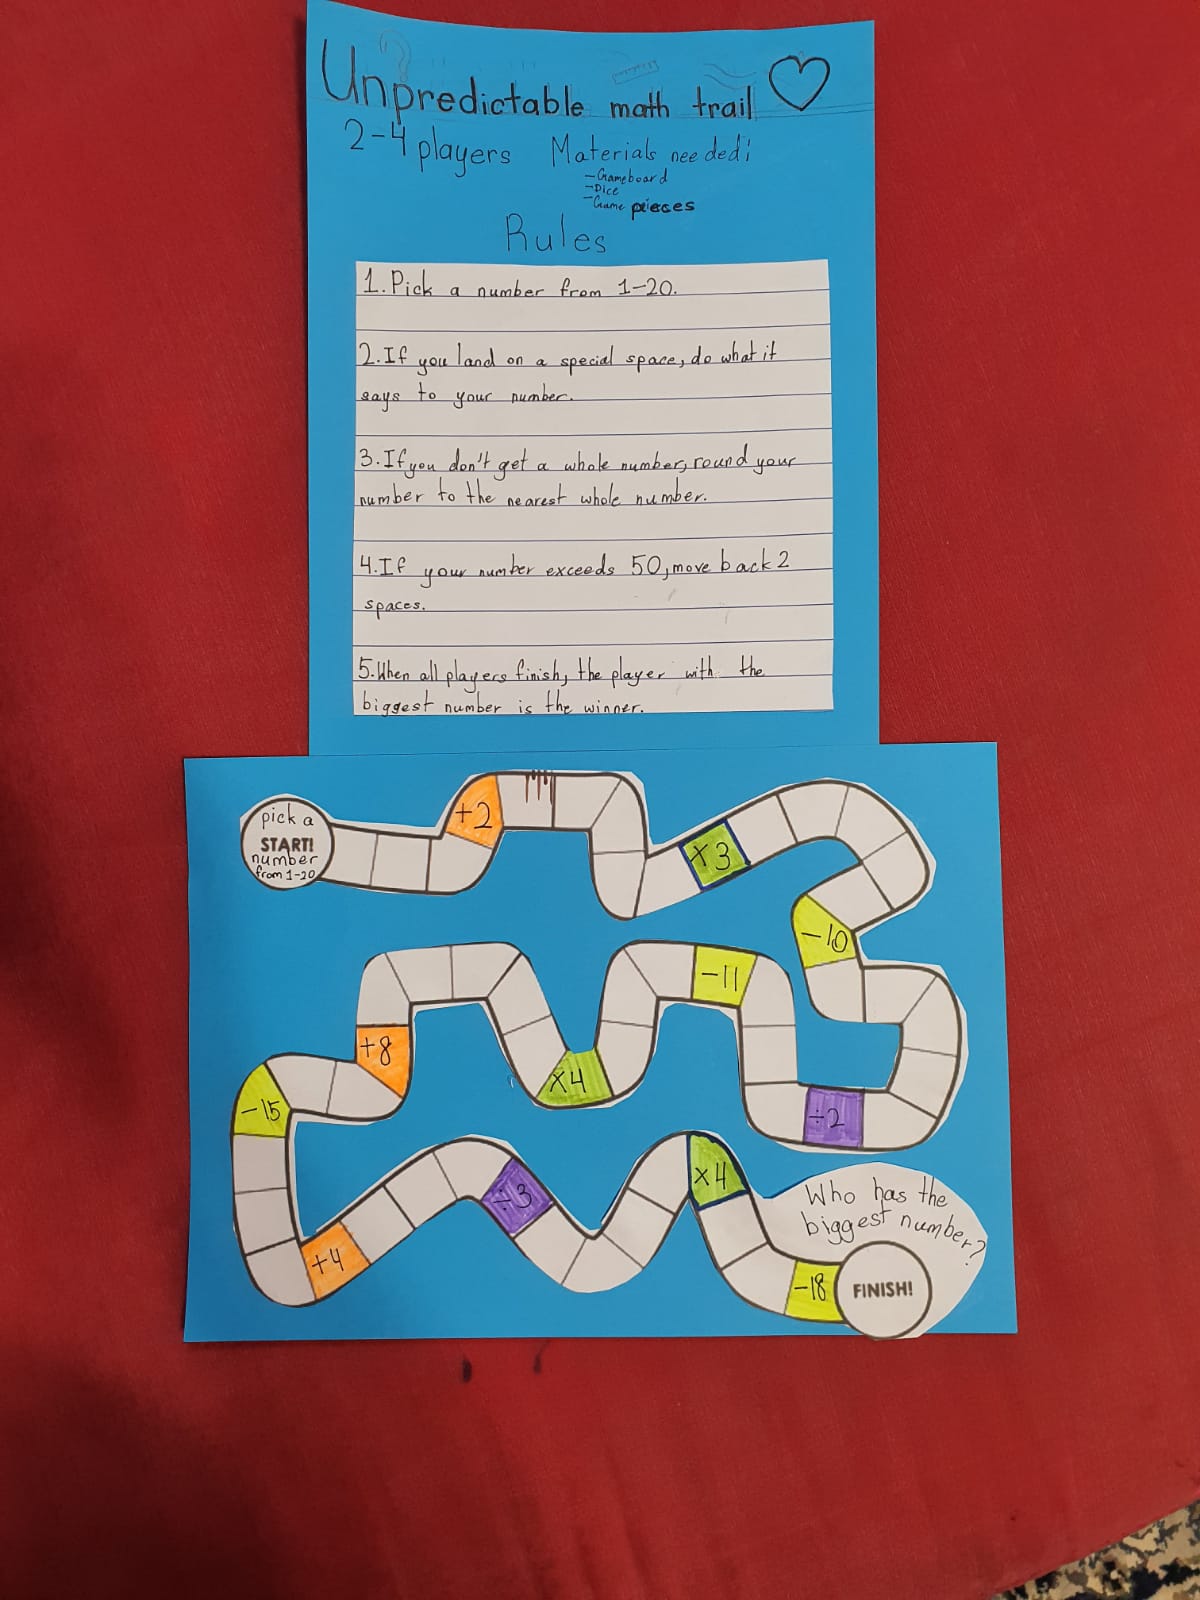 Unpredictable math trail
2-4 players Materials needed:
-Gameboard
-Dice
-Game pieces
Rules
1. Pick a number from 1-20.
2. If you land on a special space, do what it
says to your number.
3. If you don't get a whole number, round your
number to the nearest whole number.
4. If your number exceeds 50, move back 2
spaces.
5. When all players finish, the player with the
biggest number is the winner.
pick a
START!
number
from 1-20
+2
×3
-10
÷2
-11
×4
+8
-15
+4
÷3
×4
-18
Who has the
biggest number?
FINISH!